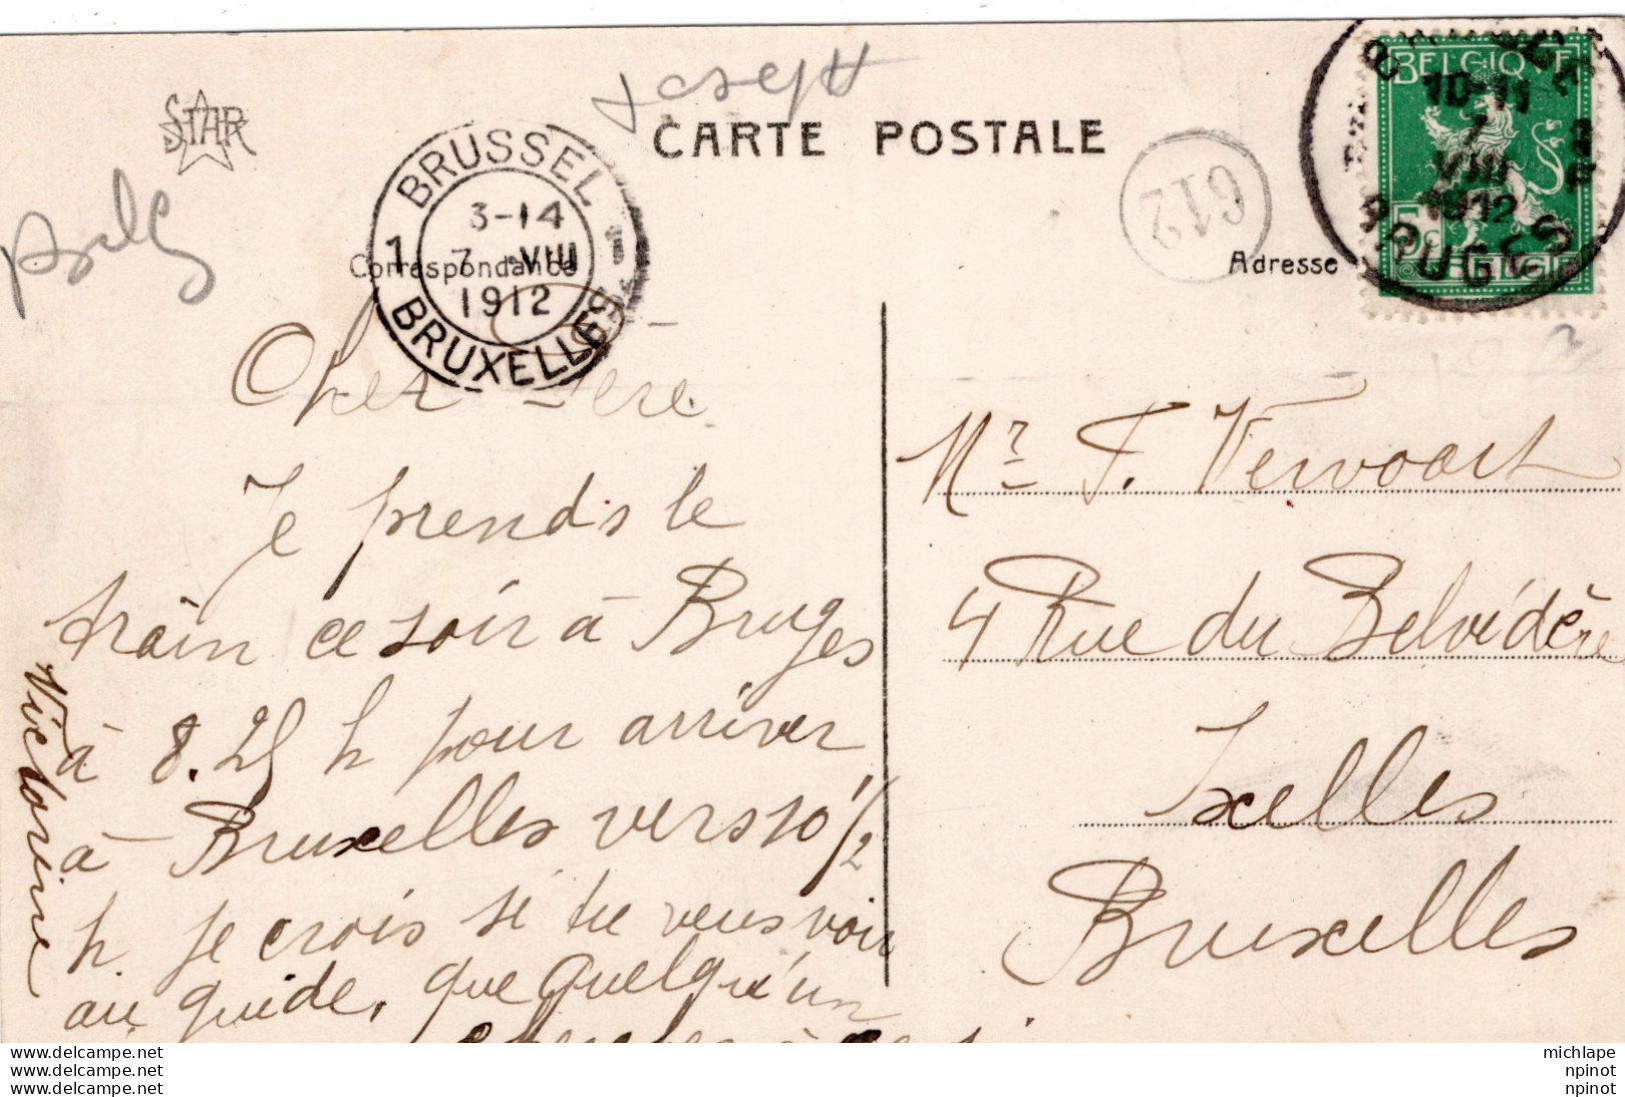 Joseph
STAR
CARTE POSTALE
BRUSSEL
3-14
7 VIII
1912
1 BRUXELLES
612
BELGIQUE
10-11
7
VIII
1912
BRUGES
5c
BELGIË
Correspondance
Adresse
Cher Père
Je prends le
train ce soir à Bruges
à 8.25 h pour arriver
à Bruxelles vers 10 1/2
h. je crois si tu veus voir
au guide, que quelqu'un
Victorine
Mr F. Vervoort
4 Rue du Belvédère
Ixelles
Bruxelles
www.delcampe.net
www.delcampe.net
www.delcampe.net
michlape
npinot
npinot